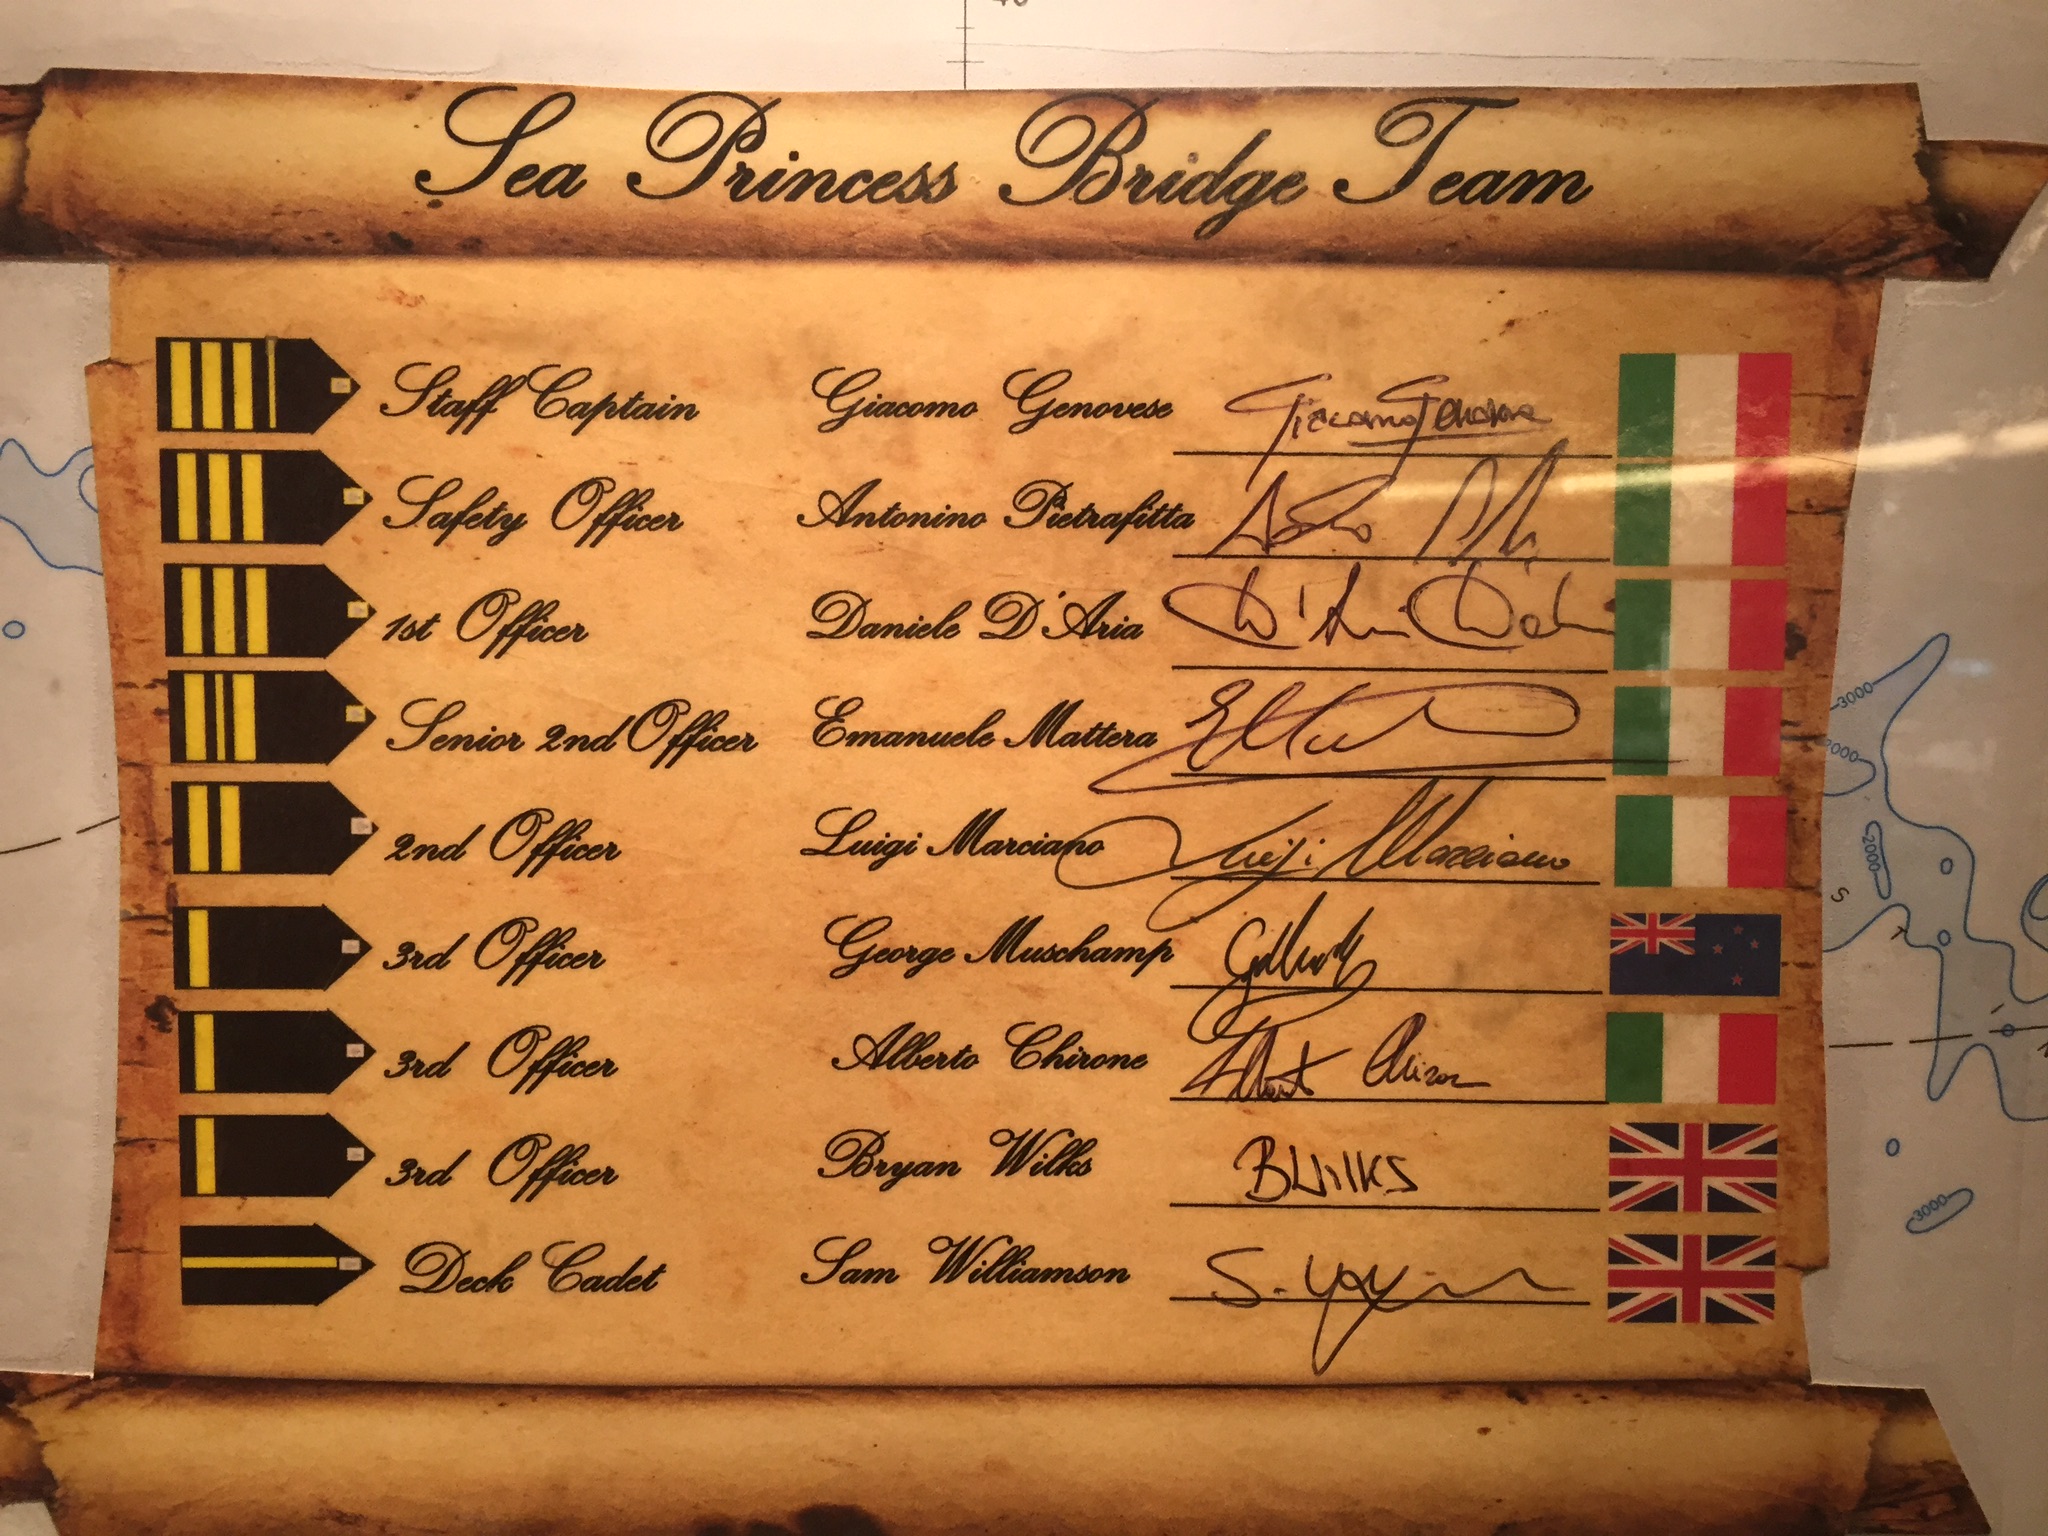 40
Sea Princess Bridge Team
Staff Captain Giacomo Genovese Giacomo Genovese
Safety Officer Antonino Pietrafitta
1st Officer Daniele D'Aria D'Aria
Senior 2nd Officer Emanuele Mattera
2nd Officer Luigi Marciano Luigi Marciano
3rd Officer George Muschamp
3rd Officer Alberto Chirone
3rd Officer Bryan Wilks BWilks
Deck Cadet Sam Williamson
3000
2000
2000
S
3000